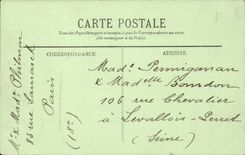 CARTE POSTALE
Tous les Pays étrangers n'acceptent pas la Correspondance au recto.
(Se renseigner à la Poste).
CORRESPONDANCE
ADRESSE
Mr & Madme Philbron
86 rue Lamarck
Paris
(18e)
Made Permigansan
& Madelle Bourdon
106 rue Chevalier
à Levallois-Perret
(Seine)